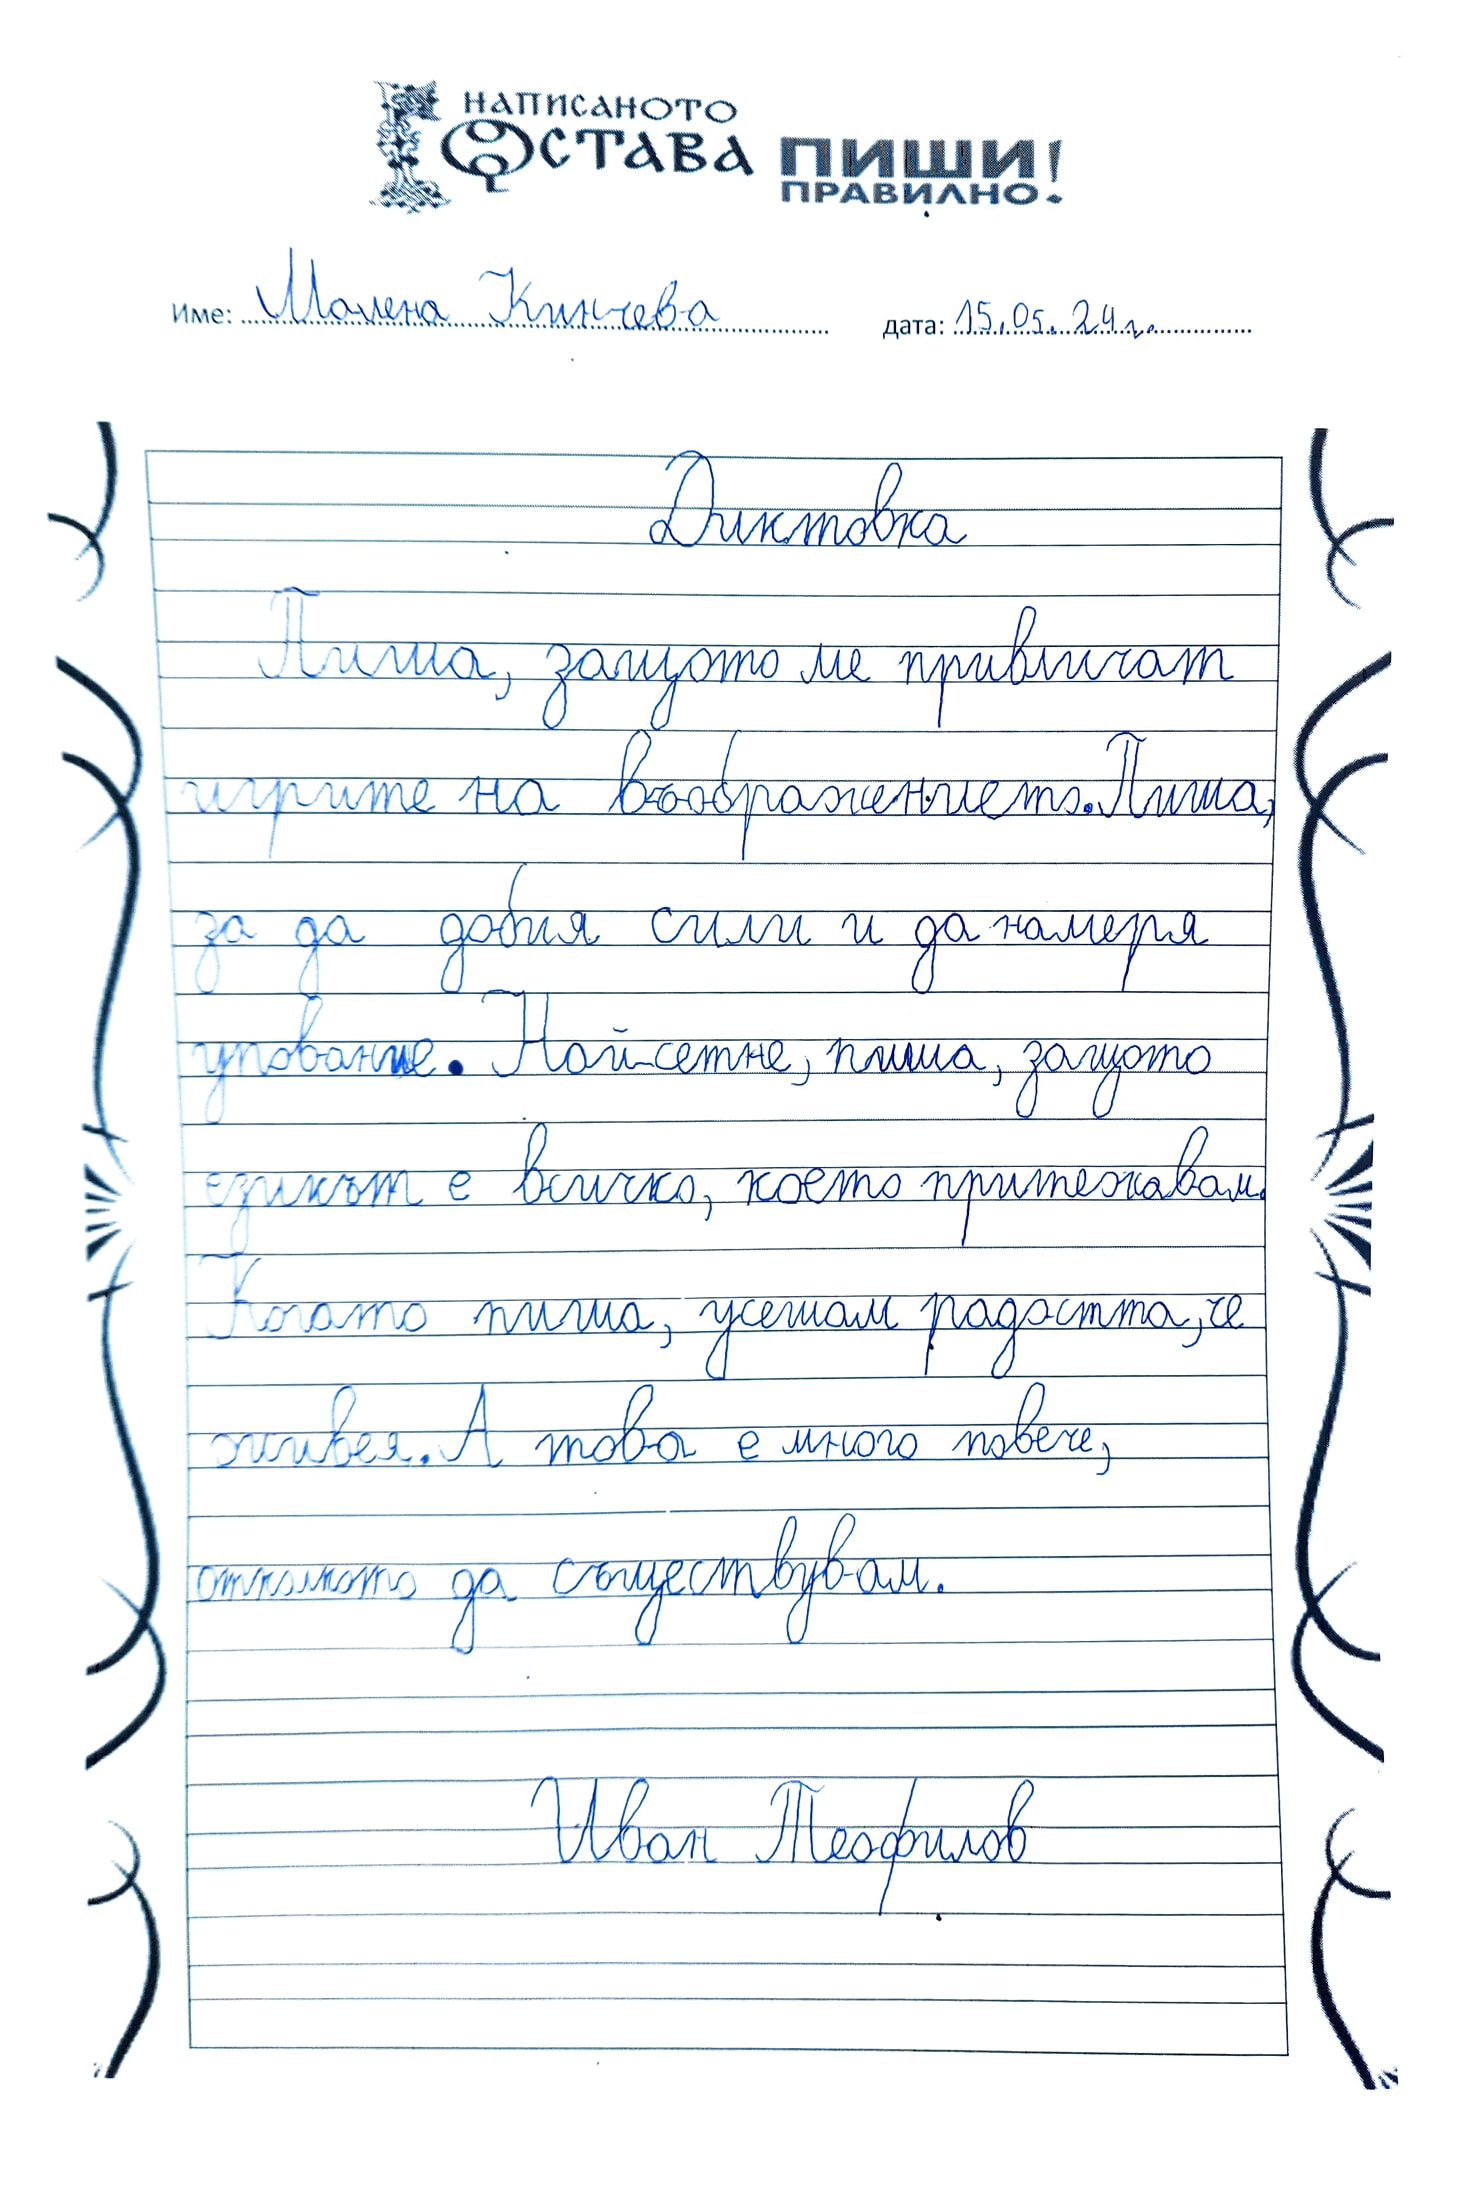 НАПИСАНОТО
ОСТАВА ПИШИ!
ПРАВИЛНО!
Име: Малена Кинчева дата: 15.05.24г.
Диктовка
Пиша, защото ме привличат
игрите на въображението. Пиша,
за да добия сили и да намеря
упование. Най-сетне, пиша, защото
езикът е всичко, което притежавам.
Когато пиша, усешам радостта, че
живея. А това е много повече,
отколкото да съществувам.
Иван Теофилов